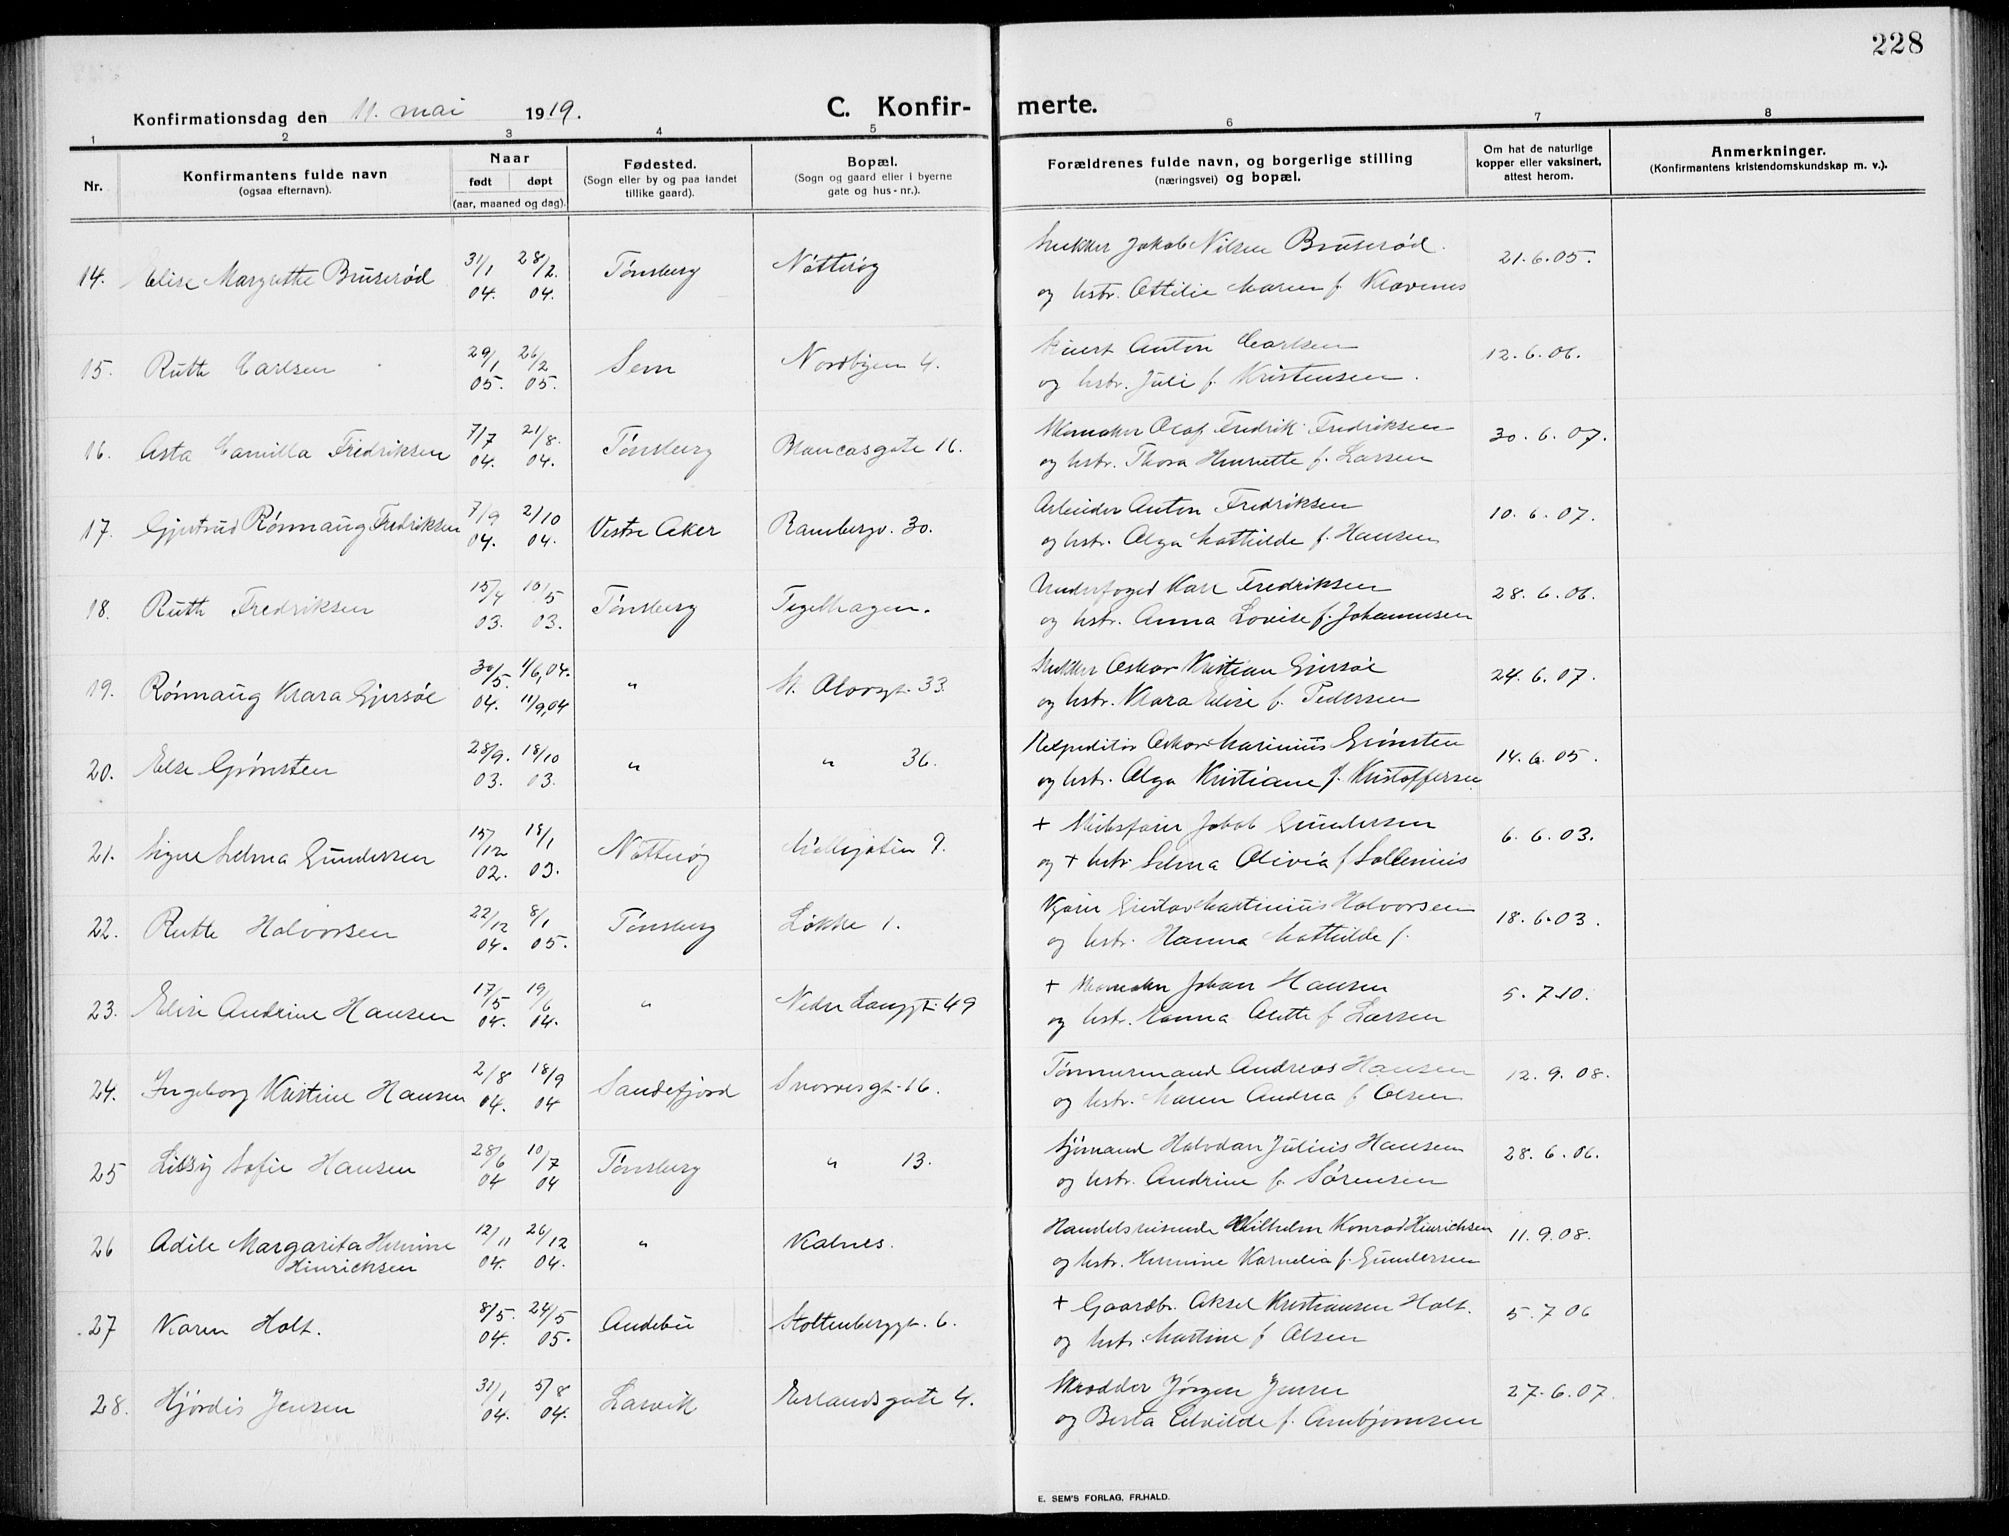 228
Konfirmationsdag den 11. mai 1919. C. Konfir- merte.
1 2 3 4 5 6 7 8
Nr. Konfirmantens fulde navn (ogsaa efternavn). Naar født døpt (aar, maaned og dag). Fødested. (Sogn eller by og paa landet tillike gaard). Bopæl. (Sogn og gaard eller i byerne gate og hus-nr.). Forældrenes fulde navn, og borgerlige stilling (næringsvei) og bopæl. Om hat de naturlige kopper eller vaksinert, attest herom. Anmerkninger. (Konfirmantens kristendomskundskap m. v.).
14. Elise Margrethe Bruserød 31/1 04. 28/2. 04. Tønsberg Nøtterøy Snekker Jakob Nilsen Bruserød. 21. 6. 05.
og hstr. Ottilie Maren f. Klavenes
15. Ruth Carlsen 29/1 05. 26/2 05. Sem Nordbyen 4. Anton Carlsen 12. 6. 06.
og hstr. Juli f. Kristensen.
16. Asta Camilla Fredriksen 7/7 04. 21/8. 04. Tønsberg Blancasgate 16. Skomaker Olaf Fredrik Fredriksen 30. 6. 07.
og hstr. Thora Henriette f. Larsen
17. Gjertrud Rønnaug Fredriksen 7/9 04. 2/10 04. Vestre Aker Rambergv. 30. Arbeider Anton Fredriksen 10. 6. 07.
og hstr. Olga Mathilde f. Hansen
18. Ruth Fredriksen 15/4 03. 10/5 03. Tønsberg Teglhagen. Underfoged Karl Fredriksen 28. 6. 06.
og hstr. Anna Lovise f. Johannesen
19. Rønnaug Klara Gjersøe 30/5. 04. 1/6,04. 11/9,04 " St. Olavsgt. 33. Snekker Oskar Kristian Gjersøe 24. 6. 07.
og hstr. Klara Elise f. Pedersen
20. Else Grønsten 28/9. 03. 18/10 03. " " 36. Ekspeditør Oskar Marinius Grønsten 14. 6. 05.
og hstr. Olga Kristiane f. Kristoffersen
21. Signe Selma Gundersen 15/12 02. 18/1 03. Nøtterøy Møllegaten 9. + Skibsfører Jakob Gundersen 6. 6. 03.
og + hstr. Selma Olivia f. Sollenius
22. Ruth Halvorsen 22/12 04. 8/1 05. Tønsberg Løkke 1. Kjører Gustav Martinius Halvorsen 18. 6. 03.
og hstr. Hanna Mathilde f.
23. Elise Andrine Hansen 17/5 04. 19/6 04. " Nedre Langgt. 49 + Skomaker Johan Hansen 5. 7 10.
og hstr. Emma Alette f. Larsen
24. Ingeborg Kristine Hansen 2/8 04. 18/9 04 Sandefjord Snorresgt. 16. Tømmermand Andreas Hansen 12. 9. 08.
og hstr. Maren Andrea f. Olsen
25 Lissy Sofie Hansen 28/6 04 10/7 04 Tønsberg " 13. Sjømand Halvdan Julius Hansen 28. 6. 06.
og hstr. Andrine f. Sørensen
26 Adile Margarita Hermine 12/11 04. 26/12 04. " Kalnes. Handelsreisende Wilhelm Konrad Hinrichsen 11. 9. 08.
Hinrichsen og hstr. Hermine Karnelia f. Gundersen
27 Karen Holt. 8/5. 04. 24/5 05. Andebu Stoltenberggt. 6. + Gaardbr. Aksel Kristiansen Holt. 5. 7 06
og hstr. Martine f. Olsen
28. Hjørdis Jensen 31/1 04. 5/8 04. Larvik Erlandsgate 4. Skrædder Jørgen Jensen 27. 6. 07.
og Berta Elvilde f. Arnbjørnsen
E. SEM'S FORLAG, FR.HALD.